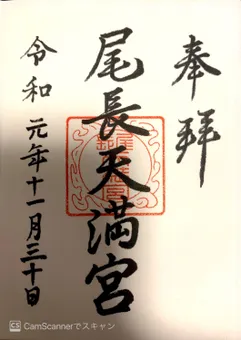 奉拝
尾長天満宮
令和元年十一月三十日
CS CamScannerでスキャン